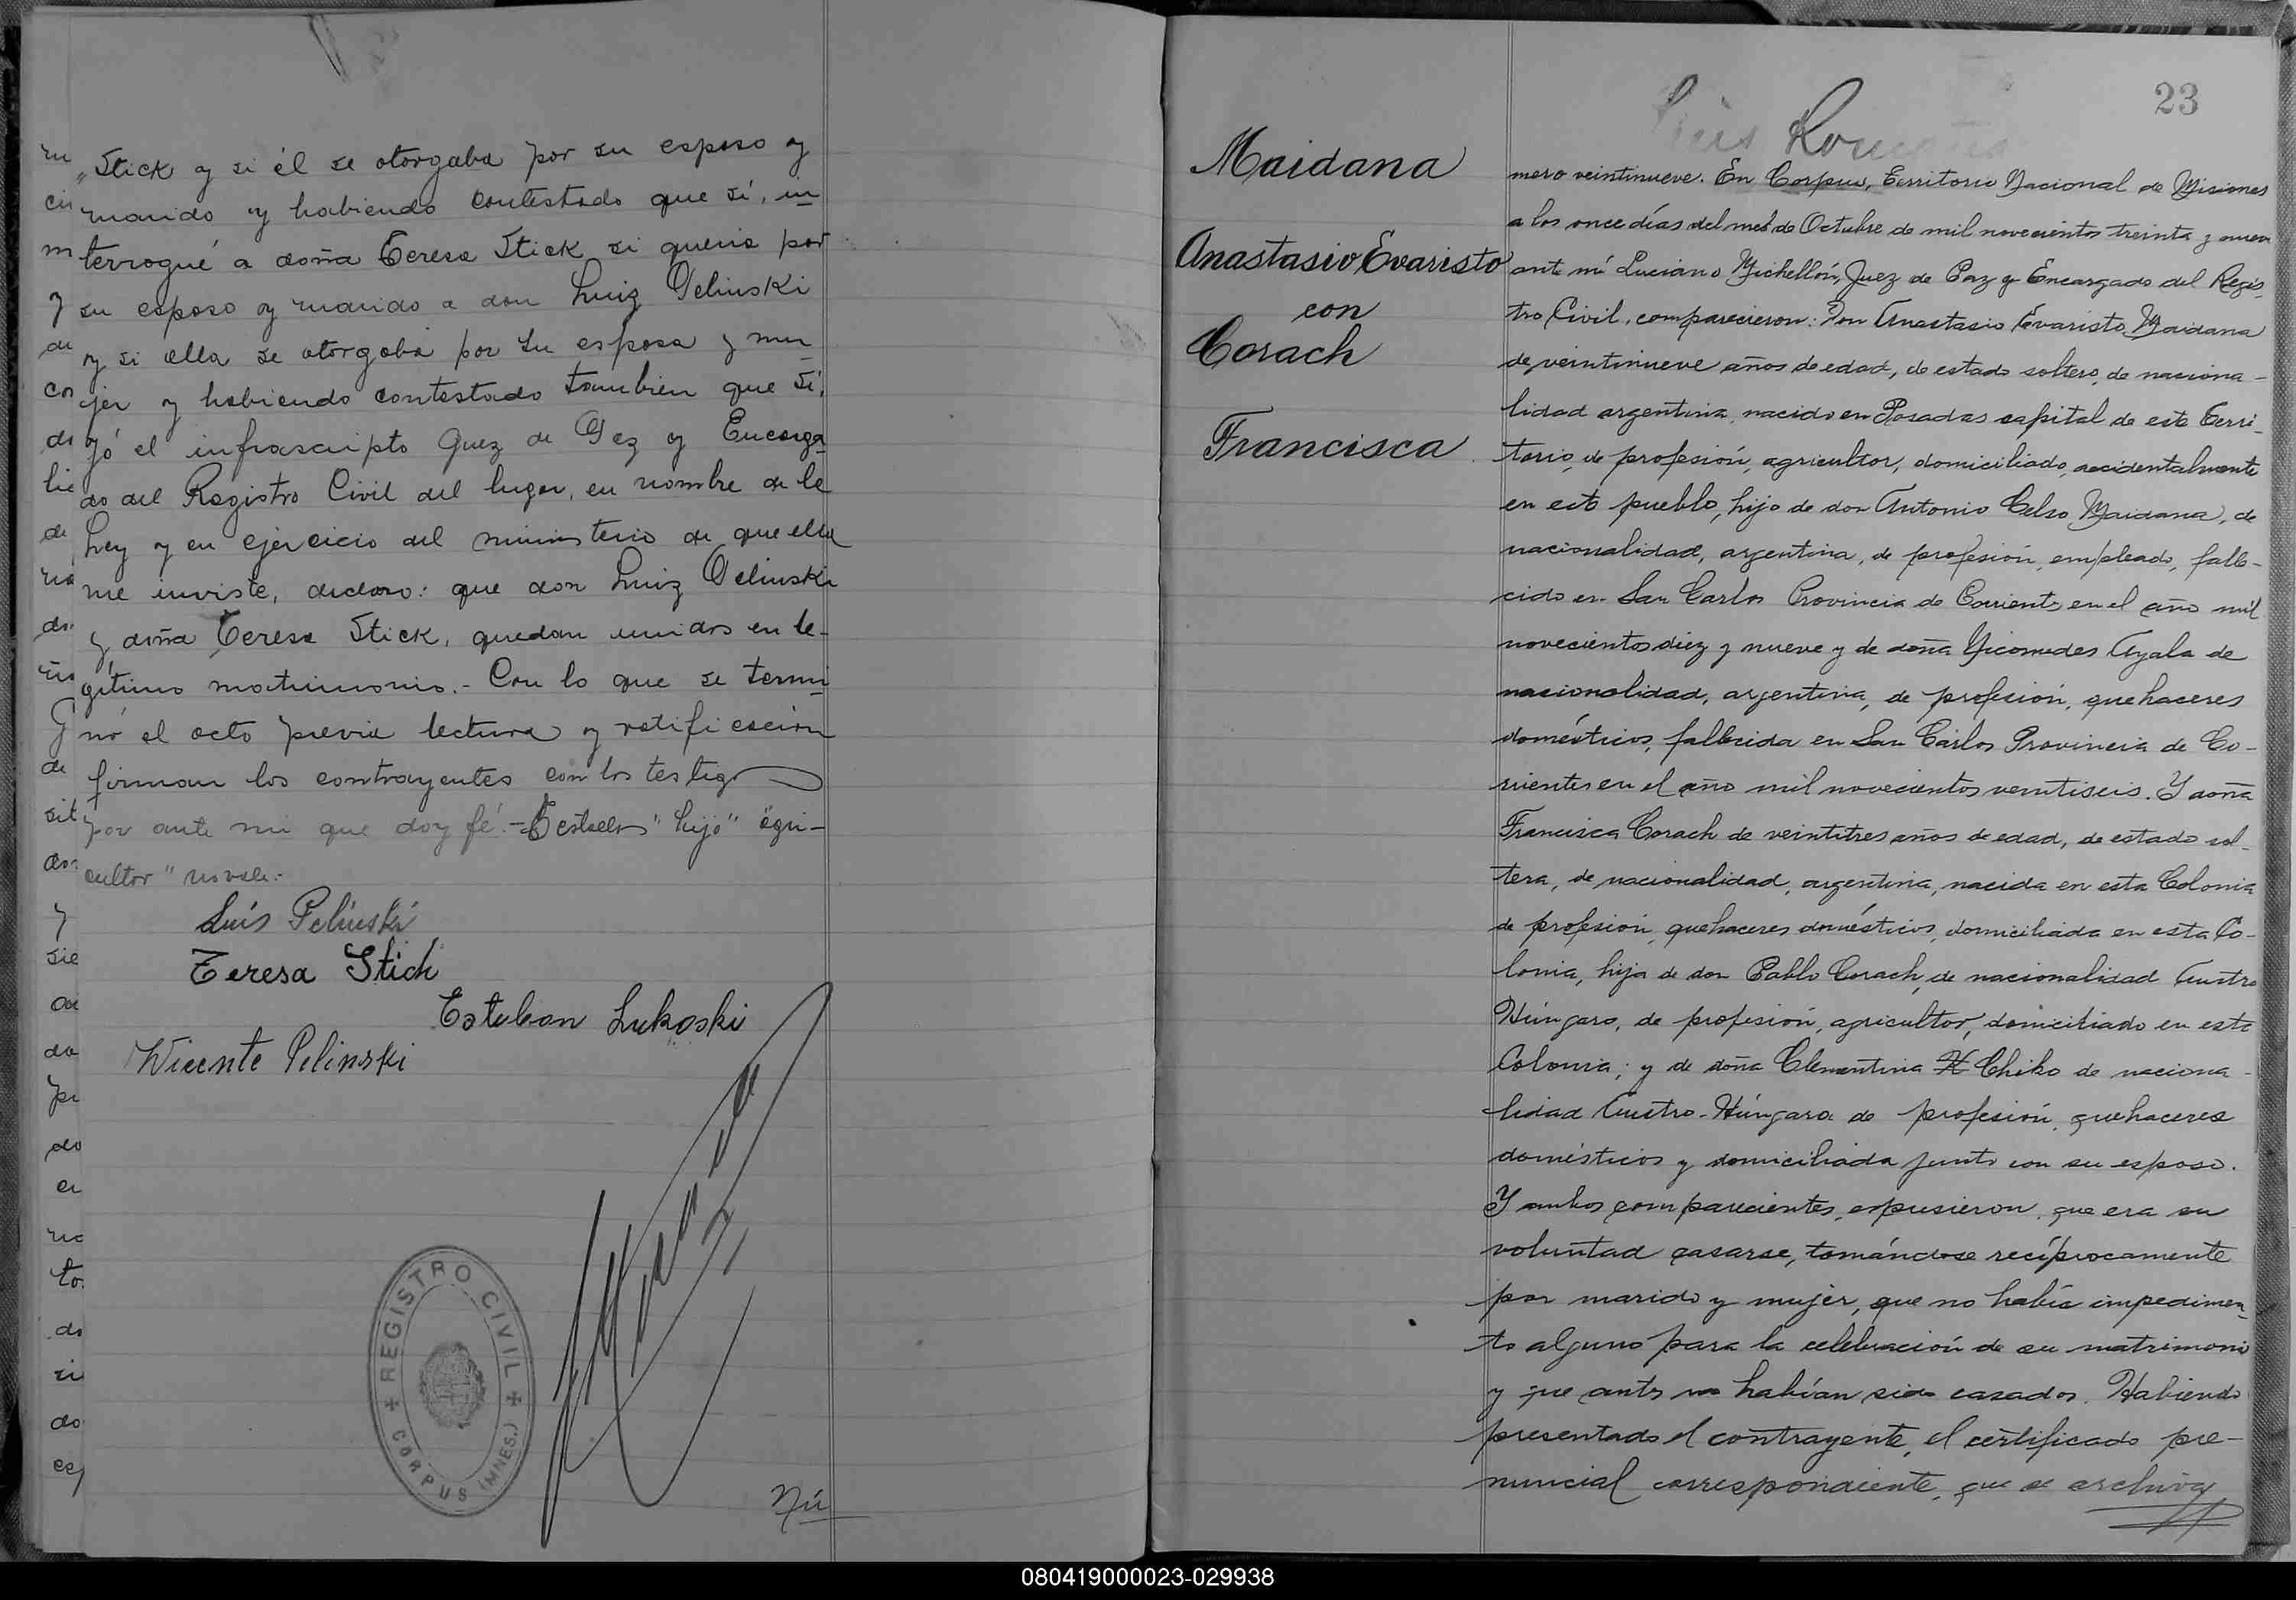 Stick y si él se otorgaba por su esposo y
marido y habiendo contestado que sí, in
terrogué a doña Teresa Stick si queria por
su esposo y marido a don Luiz Pelinski
y si ella se otorgaba por su esposa y mu
jer y habiendo contestado tambien que sí,
yó el infrascripto Juez de Paz y Encarga
do del Registro Civil del lugar, en nombre de la
Ley y en ejercicio del ministerio de que ella
me inviste, declaro: que don Luiz Pelinski
y doña Teresa Stick, quedan unidos en le-
gítimo matrimonio.- Con lo que se termi
nó el acto previa lectura y ratificación
firman los contrayentes con los testigo
por ante mi que doy fé.- "hijo" "agri-
cultor" no vale.-
Luis Pelinski
Teresa Stich
Esteban Lukoski
Wicente Pelinski
REGISTRO CIVIL
CORPUS (MNES.)
Nú
23
Luis
Maidana
Anastasio Evaristo
con
Corach
Francisca
mero veintinueve. En Corpus, Territorio Nacional de Misiones
a los once días del mes de Octubre de mil novecientos treinta y nueve
ante mí Luciano Michellón, Juez de Paz y Encargado del Regis
tro Civil, comparecieron: Don Anastasio Evaristo Maidana
de veintinueve años de edad, de estado soltero, de naciona-
lidad argentina, nacido en Posadas capital de este Terri-
torio, de profesión, agricultor, domiciliado, accidentalmente
en este pueblo, hijo de don Antonio Celso Maidana, de
nacionalidad, argentina, de profesión, empleado, falle-
cido en San Carlos Provincia de Corrientes en el año mil
novecientos diez y nueve y de doña Nicomedes Ayala de
nacionalidad, argentina, de profesión, quehaceres
domésticos, fallecida en San Carlos Provincia de Co-
rrientes en el año mil novecientos veintiseis. Y doña
Francisca Corach de veintitres años de edad, de estado sol-
tera, de nacionalidad, argentina, nacida en esta Colonia
de profesión, quehaceres domésticos, domiciliada en esta Co-
lonia, hija de don Pablo Corach, de nacionalidad Austro
Húngaro, de profesión, agricultor, domiciliado en esta
Colonia; y de doña Clementina Chiko de naciona-
lidad Austro-Húngara de profesión, quehaceres
domésticos y domiciliada junto con su esposo.
Y ambos comparecientes, expusieron, que era su
voluntad casarse, tomándose recíprocamente
por marido y mujer, que no había impedimen
to alguno para la celebración de su matrimonio
y que antes no habían sido casados. Habiendo
presentado el contrayente, el certificado pre-
nuncial correspondiente, que se archiva
080419000023-029938